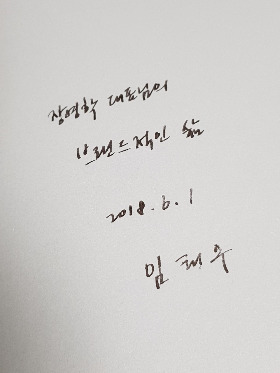 장영학 대표님의
브랜드적인 삶
2018. 6. 1
임태수